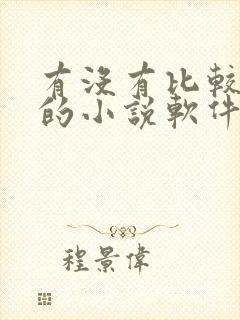 有沒有比較
的小說軟件
程景偉